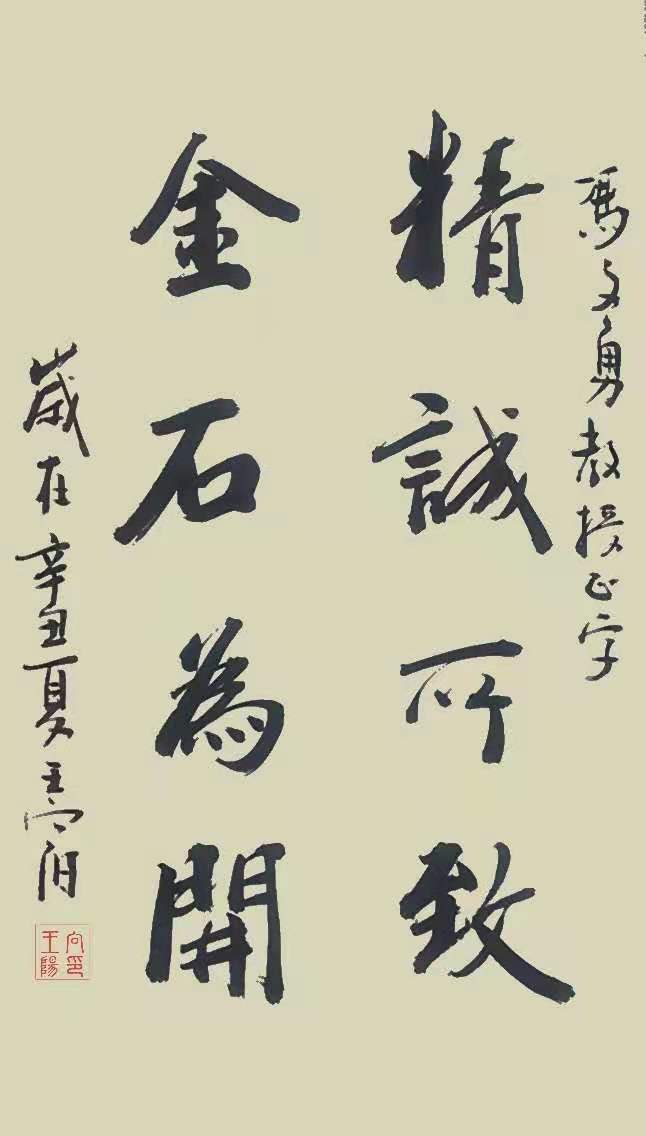 馮文勇教授正字
精誠所致
金石為開
歲在辛丑夏王向阳
王向陽印